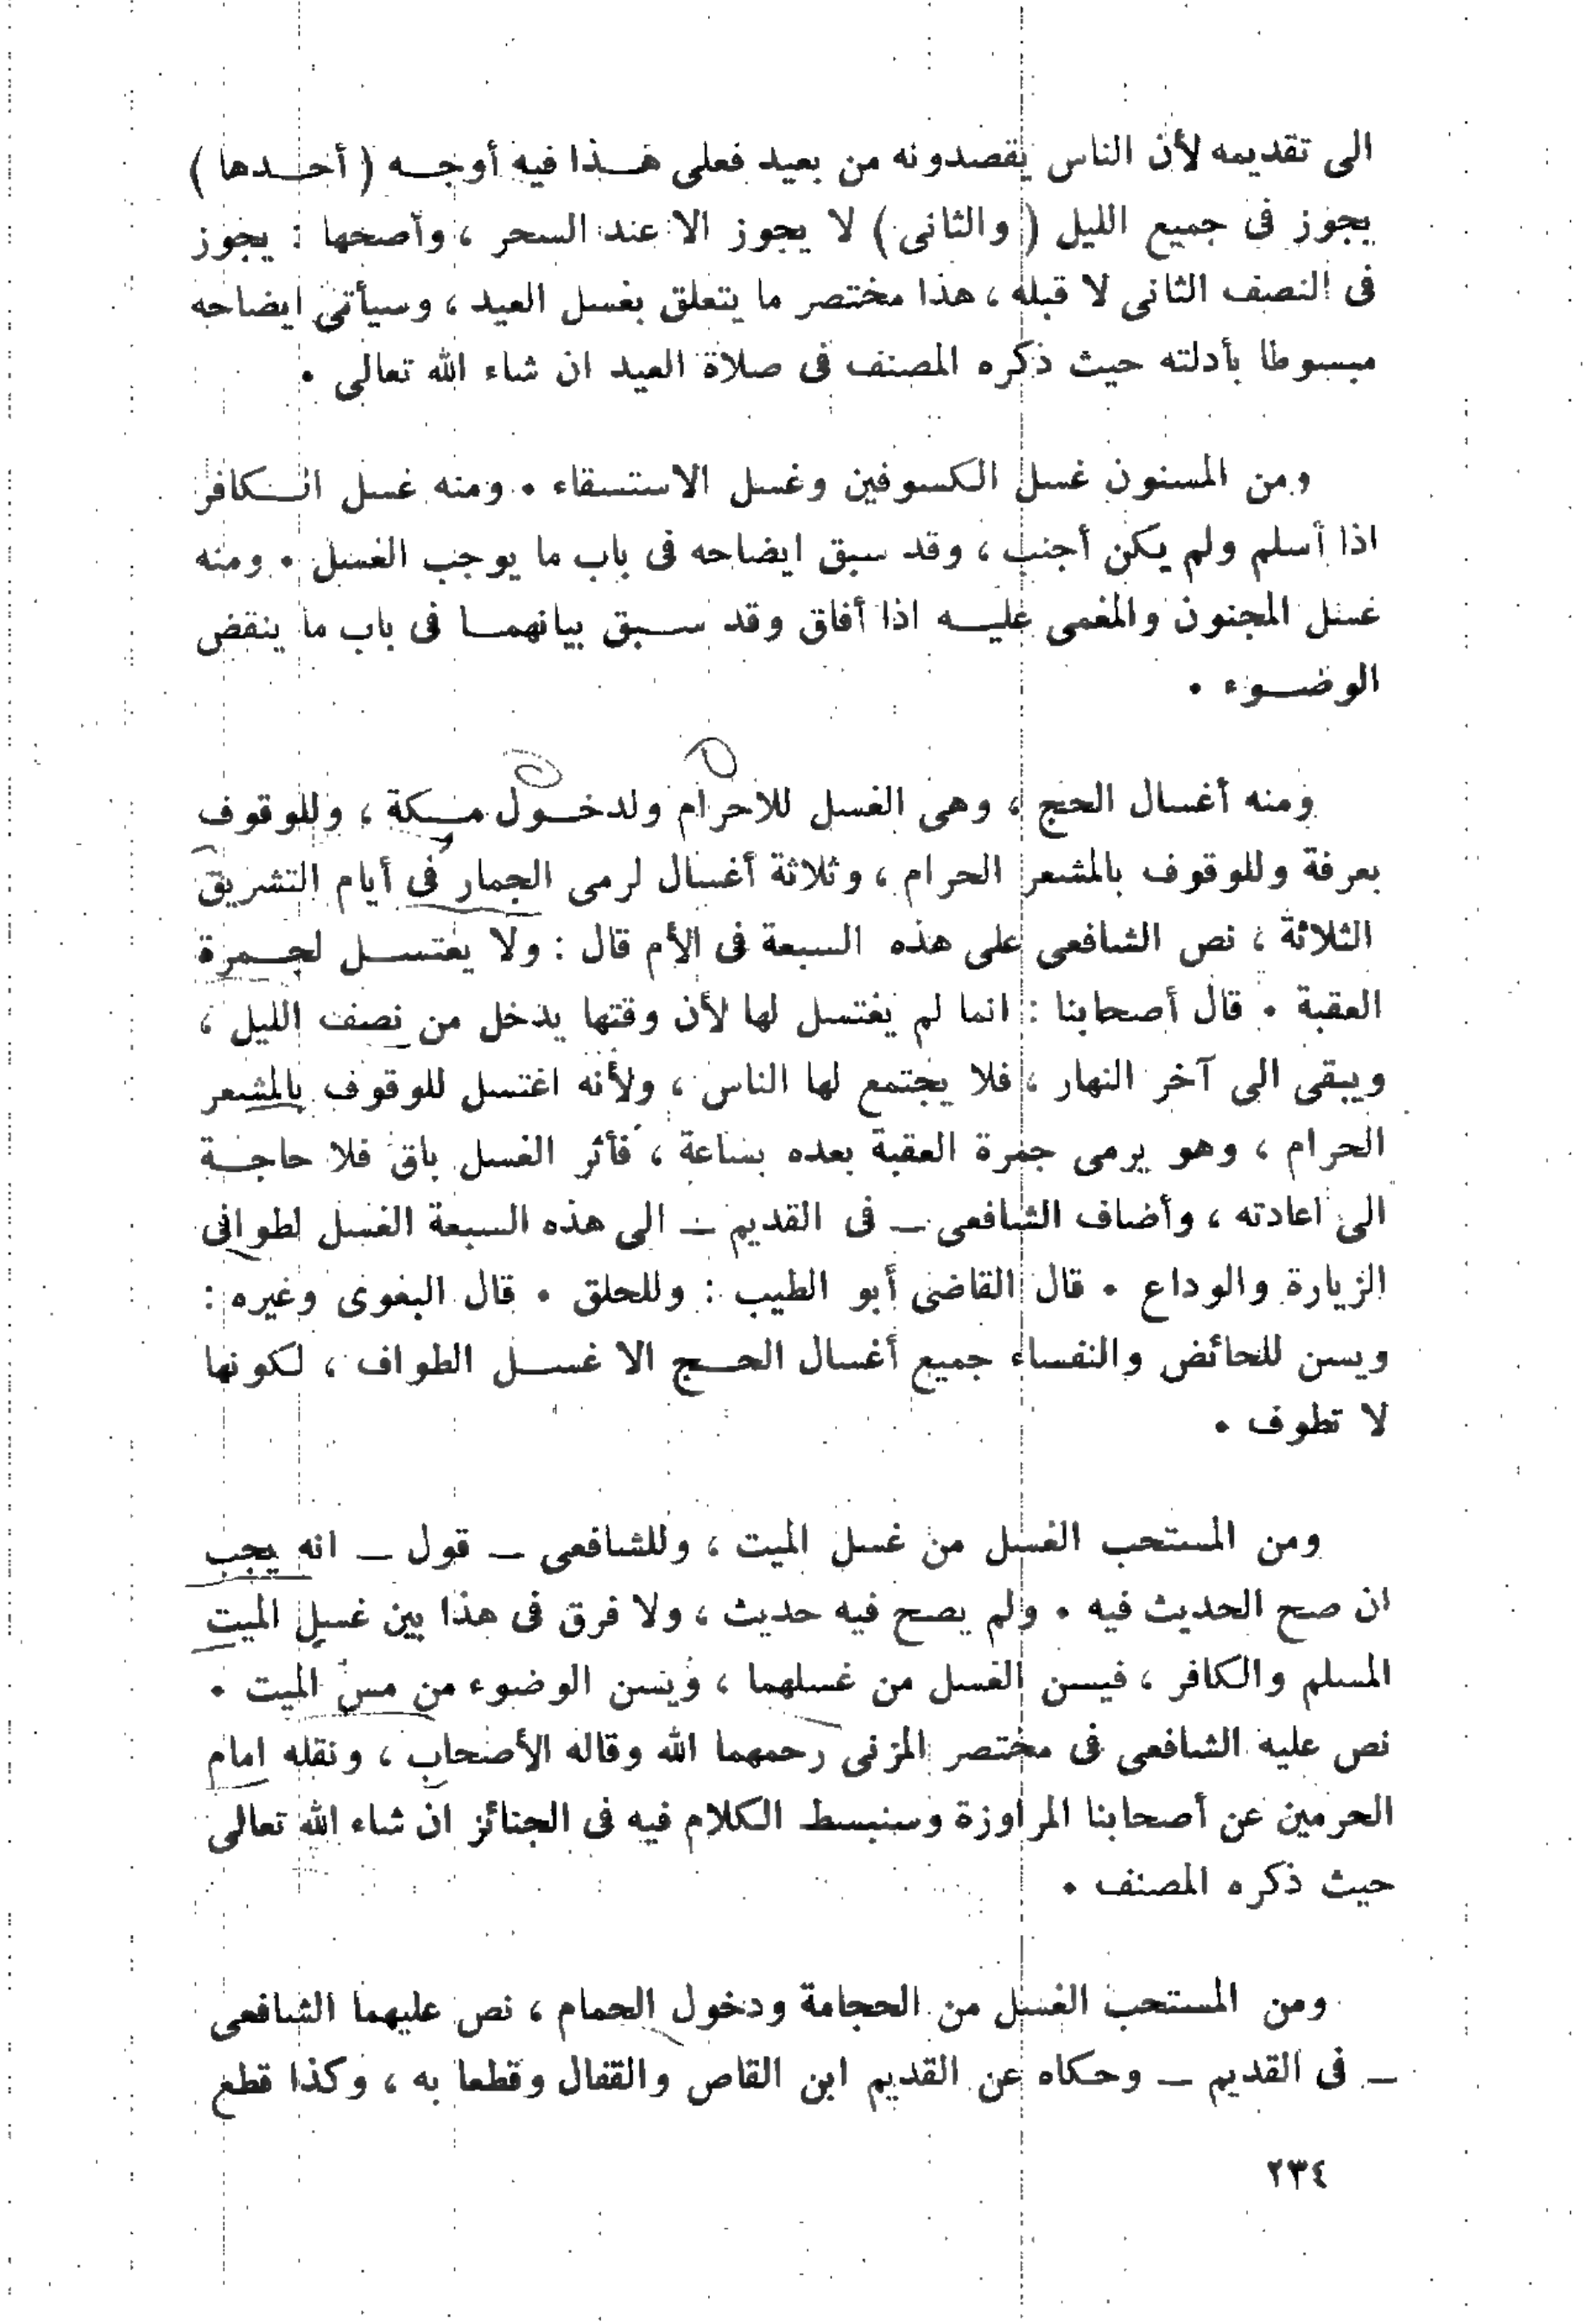 الى تقديمه لأن الناس يقصدونه من بعيد فعلى هـذا فيه أوجـه ( أحـدها )
يجوز فى جميع الليل ( والثانى ) لا يجوز الا عند السحر ، وأصحها : يجوز
فى النصف الثانى لا قبله ، هذا مختصر ما يتعلق بغسل العيد ، وسيأتى ايضاحه
مبسوطا بأدلته حيث ذكره المصنف فى صلاة العيد ان شاء الله تعالى •
ومن المسنون غسل الكسوفين وغسل الاستسقاء • ومنه غسل الـكافر
اذا أسلم ولم يكن أجنب ، وقد سبق ايضاحه فى باب ما يوجب الغسل • ومنه
غسل المجنون والمغمى عليـه اذا أفاق وقد سـبق بيانهمـا فى باب ما ينقض
الوضـوء •
ومنه أغسال الحج ، وهى الغسل للاحرام ولدخـول مـكة ، وللوقوف
بعرفة وللوقوف بالمشعر الحرام ، وثلاثة أغسال لرمى الجمار فى أيام التشريق
الثلاثة ، نص الشافعى على هذه السبعة فى الأم قال : ولا يغتسـل لجـمرة
العقبة • قال أصحابنا : انما لم يغتسل لها لأن وقتها يدخل من نصف الليل ،
ويبقى الى آخر النهار ، فلا يجتمع لها الناس ، ولأنه اغتسل للوقوف بالمشعر
الحرام ، وهو يرمى جمرة العقبة بعده بساعة ، فأثر الغسل باق فلا حاجـة
الى اعادته ، وأضاف الشافعى ــ فى القديم ــ الى هذه السبعة الغسل لطوافى
الزيارة والوداع • قال القاضى أبو الطيب : وللحلق • قال البغوى وغيره :
ويسن للحائض والنفساء جميع أغسال الحـج الا غسـل الطواف ، لـكونها
لا تطوف •
ومن المستحب الغسل من غسل الميت ، وللشافعى ــ قول ــ انه يجب
ان صح الحديث فيه • ولم يصح فيه حديث ، ولا فرق فى هذا بين غسل الميت
المسلم والكافر ، فيسن الغسل من غسلهما ، ويسن الوضوء من مس الميت •
نص عليه الشافعى فى مختصر المزنى رحمهما الله وقاله الأصحاب ، ونقله امام
الحرمين عن أصحابنا المراوزة وسنبسط الكلام فيه فى الجنائز ان شاء الله تعالى
حيث ذكره المصنف •
ومن المستحب الغسل من الحجامة ودخول الحمام ، نص عليهما الشافعى
ــ فى القديم ــ وحـكاه عن القديم ابن القاص والقفال وقطعا به ، وكذا قطع
٢٣٤